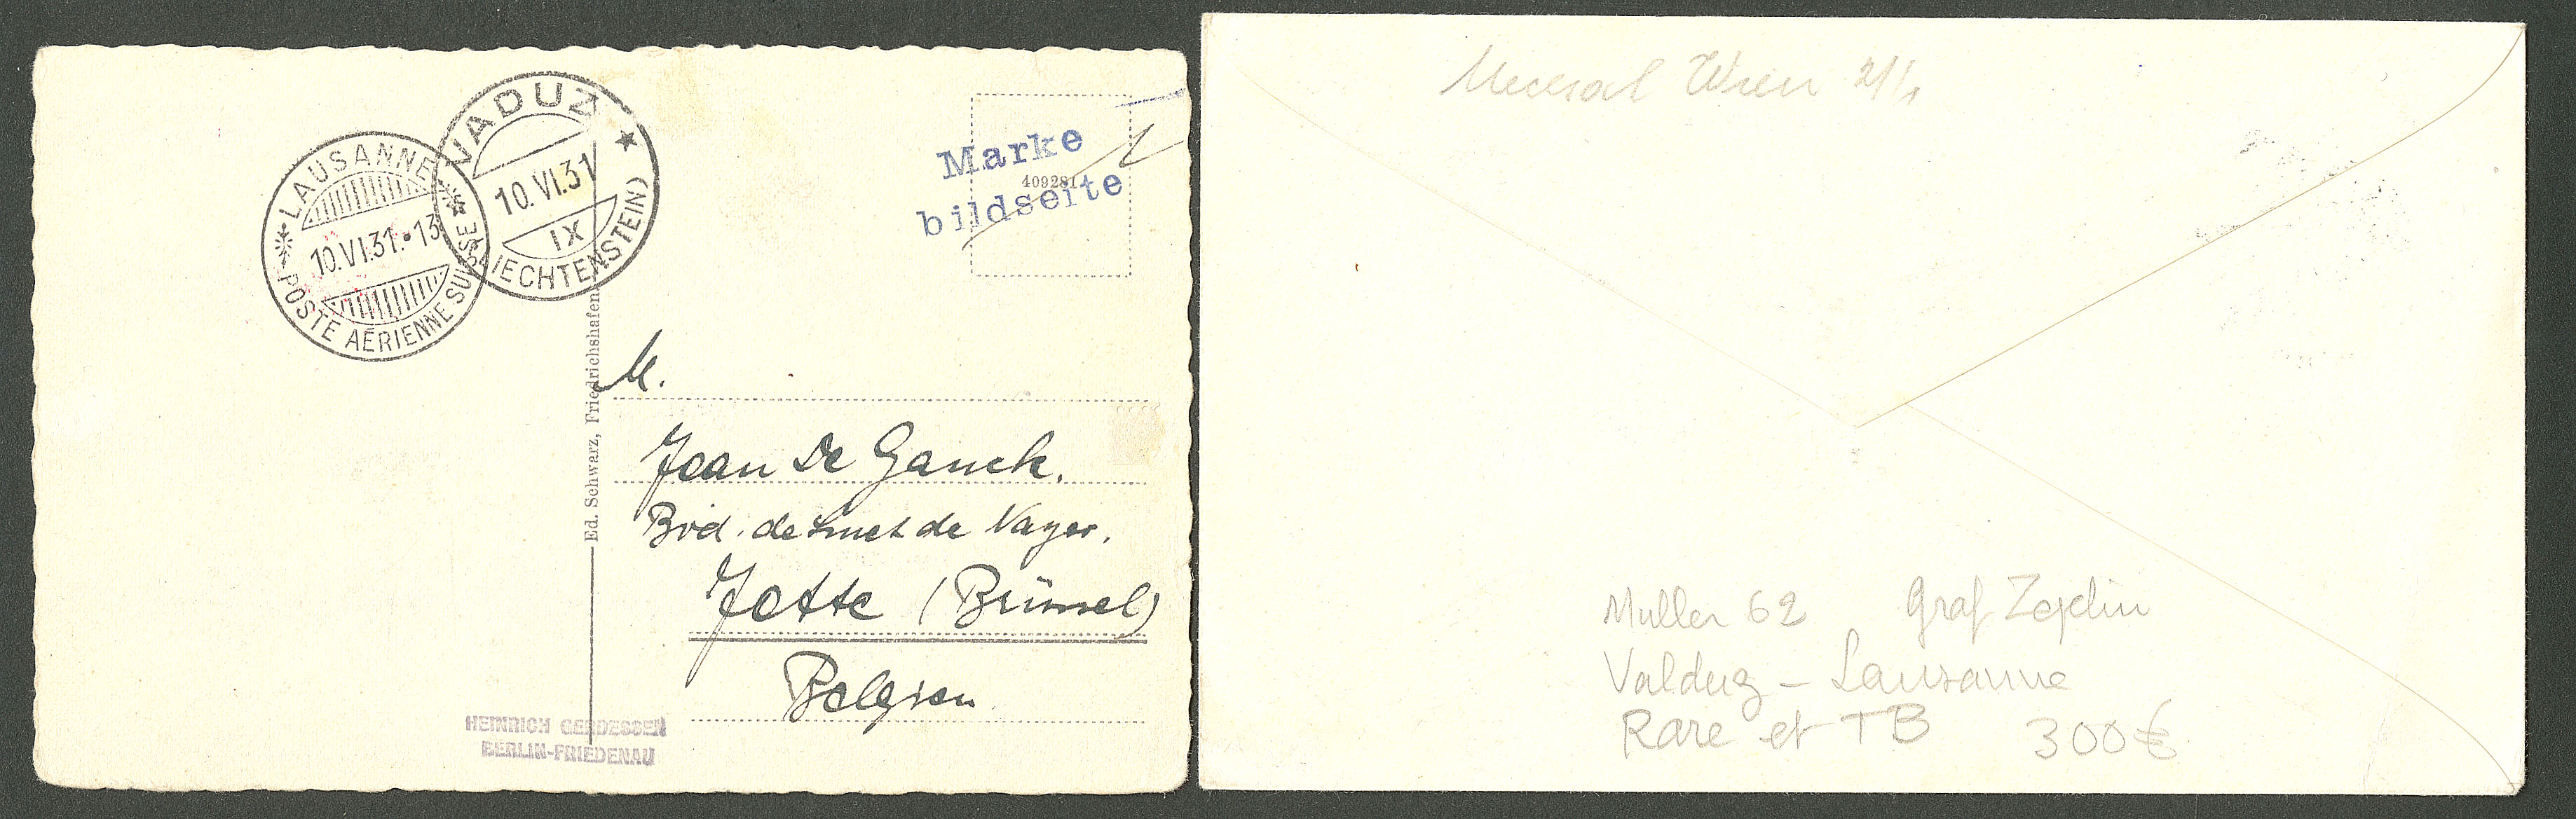 LAUSANNE
10.VI.31.•13
POSTE AÉRIENNE SUISSE
VADUZ
10.VI.31
IX
(LIECHTENSTEIN)
Marke
409281
bildseite
Ed. Schwarz, Friedrichshafen
M.
Jean De Ganck.
Bvd. de Smet de Nayer.
Jette (Brüssel)
Belgien
HEINRICH GERDESSEN
BERLIN-FRIEDENAU
Wien
Muller 62 Graf Zeplin
Valduz - Lausanne
Rare et TB 300€